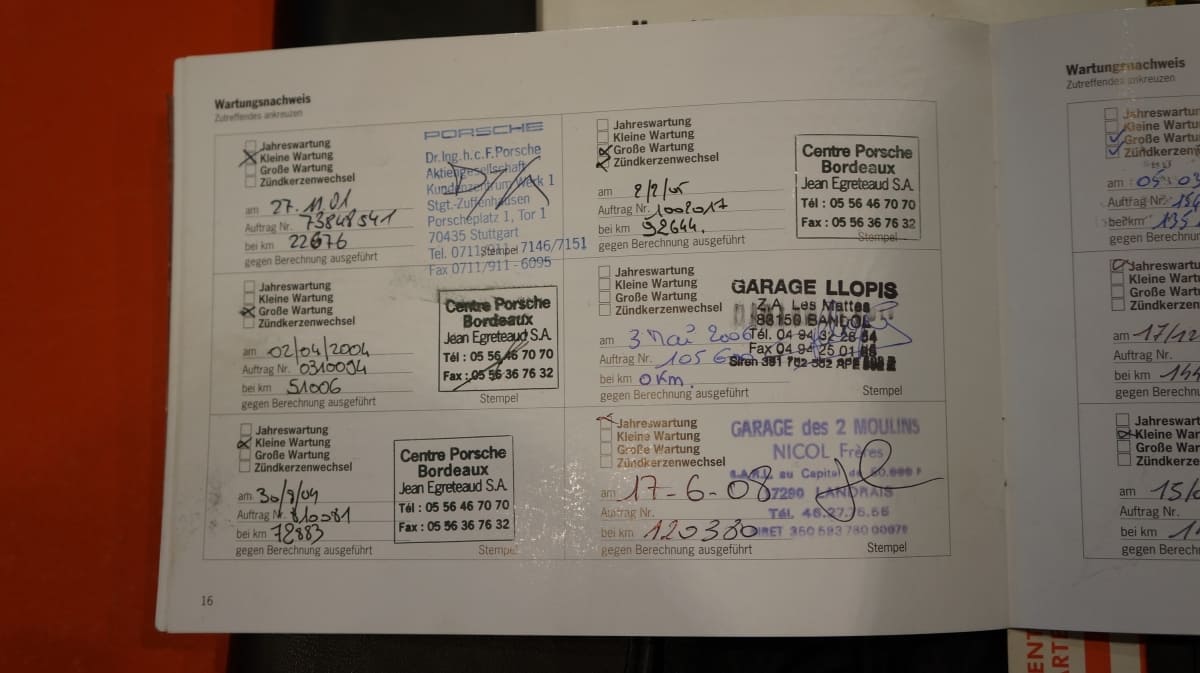 Wartungsnachweis
Zutreffendes ankreuzen
Jahreswartung
Kleine Wartung
Große Wartung
Zündkerzenwechsel
am 27.11.01
Auftrag Nr. 73848541
bei km 22676
gegen Berechnung ausgeführt
PORSCHE
Dr.Ing.h.c.F.Porsche
Aktiengesellschaft
Kundenzentrum Werk 1
Stgt.-Zuffenhausen
Porscheplatz 1, Tor 1
70435 Stuttgart
Tel. 0711/911-7146/7151
Stempel
Fax 0711/911-6095
Jahreswartung
Kleine Wartung
Große Wartung
Zündkerzenwechsel
am 02/04/2004
Auftrag Nr. 0310094
bei km 51006
gegen Berechnung ausgeführt
Centre Porsche
Bordeaux
Jean Egreteaud S.A.
Tél : 05 56 46 70 70
Fax : 05 56 36 76 32
Stempel
Jahreswartung
Kleine Wartung
Große Wartung
Zündkerzenwechsel
am 30/9/04
Auftrag Nr. 810081
bei km 72883
gegen Berechnung ausgeführt
Centre Porsche
Bordeaux
Jean Egreteaud S.A.
Tél : 05 56 46 70 70
Fax : 05 56 36 76 32
Stempel
16
Jahreswartung
Kleine Wartung
Große Wartung
Zündkerzenwechsel
am 2/2/05
Auftrag Nr. 1002017
bei km 92644.
gegen Berechnung ausgeführt
Centre Porsche
Bordeaux
Jean Egreteaud S.A.
Tél : 05 56 46 70 70
Fax : 05 56 36 76 32
Stempel
Jahreswartung
Kleine Wartung
Große Wartung
Zündkerzenwechsel
am 3 Mai 2006
Auftrag Nr. 105
bei km 0 Km.
gegen Berechnung ausgeführt
GARAGE LLOPIS
Z.A. Les Mattes
83150 BANDOL
Tél. 04 94 32
Fax 04 94 25 01
Siren 381 732 552 APE
Stempel
Jahreswartung
Kleine Wartung
Große Wartung
Zündkerzenwechsel
am 17-6-08
Auftrag Nr.
bei km 120380
gegen Berechnung ausgeführt
GARAGE des 2 MOULINS
NICOL Frères
S.A.R.L. au Capital de 50.000 F
17290 LANDRAIS
Tél. 46.27.75.66
SIRET 350 593 780 00078
Stempel
Wartungsnachweis
Zutreffendes ankreuzen
Jahreswartu
Kleine Wartu
Große Wartu
Zündkerzen
am 05.03
Auftrag Nr.
bei km 135
gegen Berechn
Jahreswartu
Kleine Wartu
Große Wartu
Zündkerzen
am 17/12
Auftrag Nr.
bei km 144
gegen Berechn
Jahreswart
Kleine War
Große Wart
Zündkerzen
am 15/0
Auftrag Nr.
bei km 1
gegen Berech